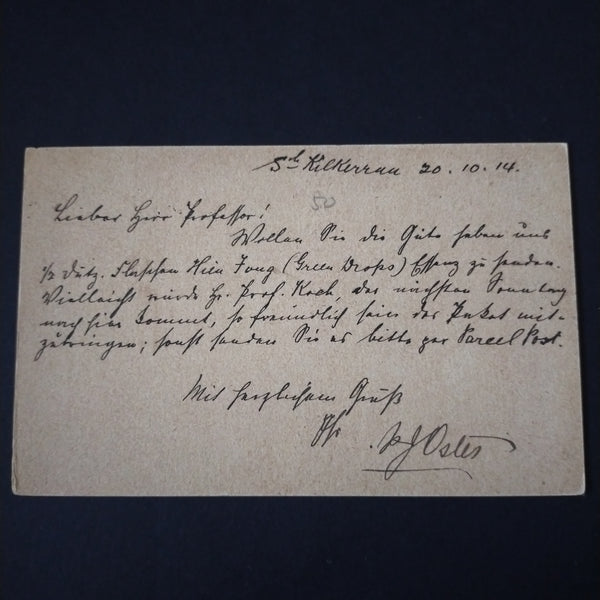 Sth Kilkerran 20.10.14.
50
Lieber Herr Professor!
Wollen Sie die Güte haben uns
1/2 Dutz. Flaschen Hien Fong (Green Drops) Essenz zu senden.
Vielleicht würde Hr. Prof. Koch, der nächsten Sonntag
nach hier kommt, so freundlich sein das Paket mit-
zubringen; sonst senden Sie es bitte per Parcel Post.
Mit herzlichem Gruß
Ihr